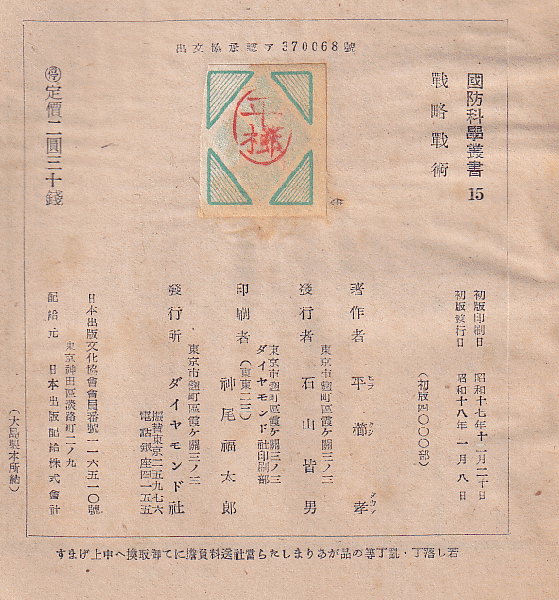 出文協承認ア370068號
國防科學叢書 15
戰略戰術
㊞定價二圓三十錢
初版印刷日 昭和十七年十一月二十日
初版發行日 昭和十八年一月八日
(初版四〇〇〇部)
著作者 平櫛孝
東京市麴町區霞ヶ關三ノ三
發行者 石山皆男
東京市麴町區霞ヶ關三ノ三
ダイヤモンド社印刷部
(東東二三)
印刷者 神尾福太郎
東京市麴町區霞ヶ關三ノ三
發行所 ダイヤモンド社
振替東京二五九七六
電話銀座四一五五
日本出版文化協會會員番號一一六五一〇號
東京神田區淡路町二ノ九
配給元 日本出版配給株式會社
(大島製本所納)
若し落丁・亂丁等の品がありましたら當社送料負擔にて御取換へ申上げます